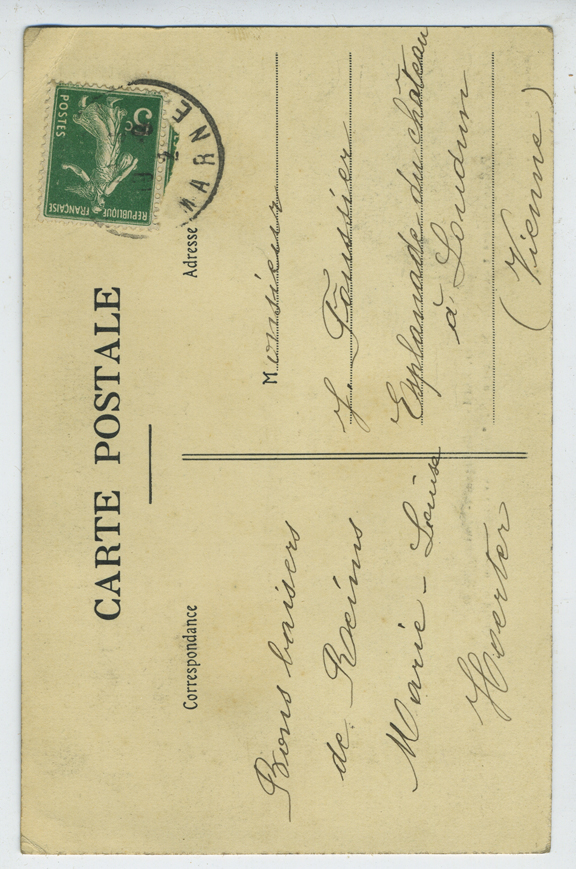 CARTE POSTALE
Correspondance
Bons baisers
de Reims
Marie-Louise
Hoerter
Adresse
Monsieur
J. Foussier
Esplanade du château
à Loudun
(Vienne)
5c
POSTES
REPUBLIQUE FRANÇAISE
MARNE